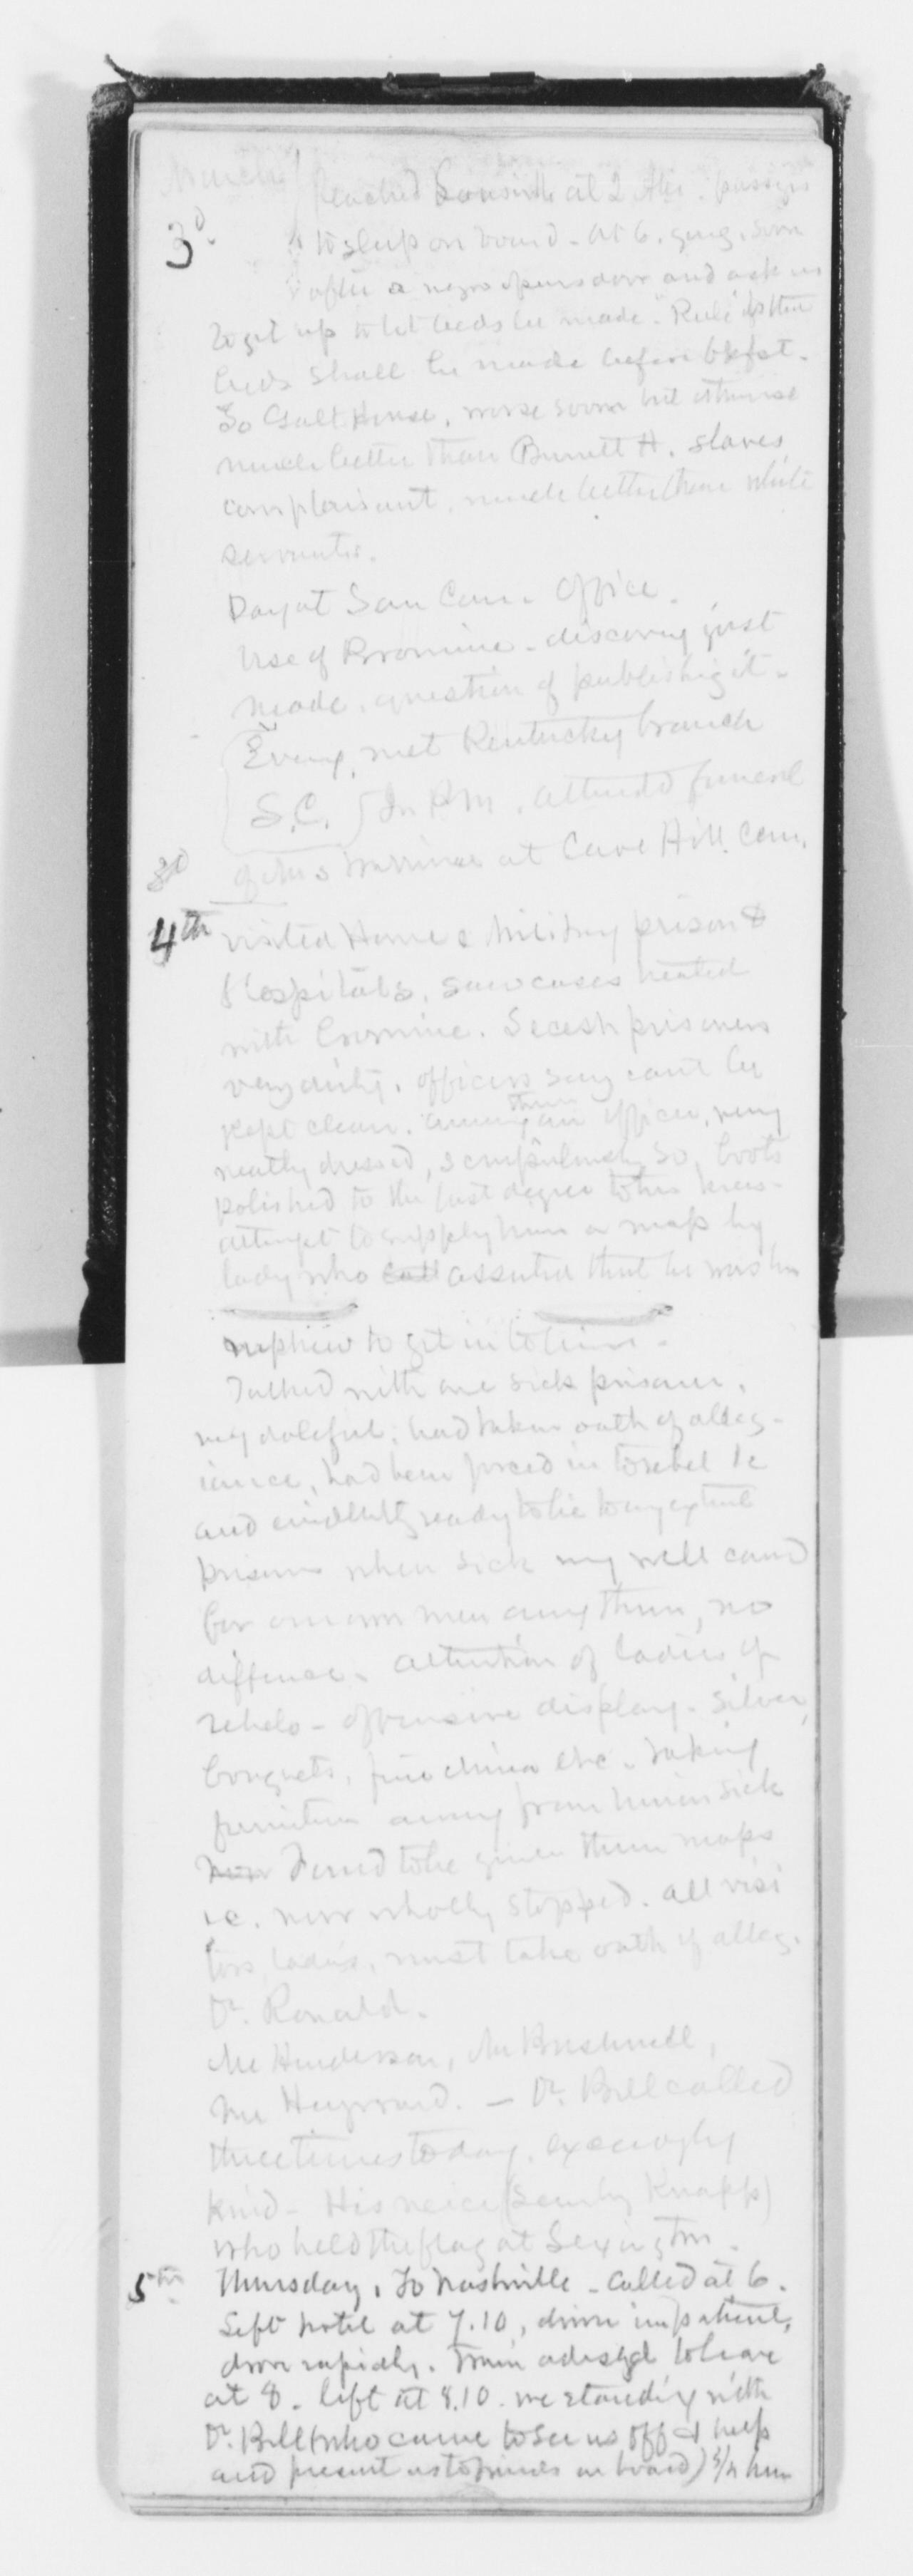 March
3d.
Reached Louisville at 2 AM. passgrs
to sleep on board. At 6, gong, soon
after a negro opens door and ask us
to get up to let beds be made. Rule that
beds shall be made before bkfst.
To Galt House, worse room but otherwise
much better than Burnett H. slaves
complaisant, much better than white
servants.
Day at San Com. Office.
Use of Bromine - discovery just
made, question of publishing it.
Eveng, met Kentucky branch
S.C. In P.M. attended funeral
of Mrs at Cave Hill. Cem.
4th visited Home & Military prison &
Hospitals. Saw cases treated
with bromine. Secesh prisoners
very dirty. officers say cant be
kept clean. among them an officer, very
neatly dressed, scrupulously so, boots
polished to the last degree to his knees -
attempt to supply him a map by
lady who asserted that he was her
nephew to get in to him.
Talked with one sick prisoner,
very doleful; had taken oath of alleg-
iance, had been forced in to rebel
and evidently ready to lie to any extent
prisoners when sick very well cared
for our own men among them, no
difference. Attention of ladies of
rebels - offensive display. Silver,
bouquets, fine china etc. taking
furniture away from Union sick
Found to be given them maps
&c. now wholly stopped. all visi
tors, ladies, must take oath of alleg.
Dr. Ronald.
Mr Henderson, Mr Bushnell,
Mr Heywood. - Dr. Bell called
three times today. exceedgly
kind - His neice ( Knapp)
who held the flag at Lexington.
5th Thursday, To Nashville - Called at 6.
Left hotel at 7.10, driver impatient,
drove rapidly. Train advstzd to leave
at 8. left at 8.10. we standing with
Dr. Bell (who came to see us off & help
and present us to friends on board) 3/4 hour